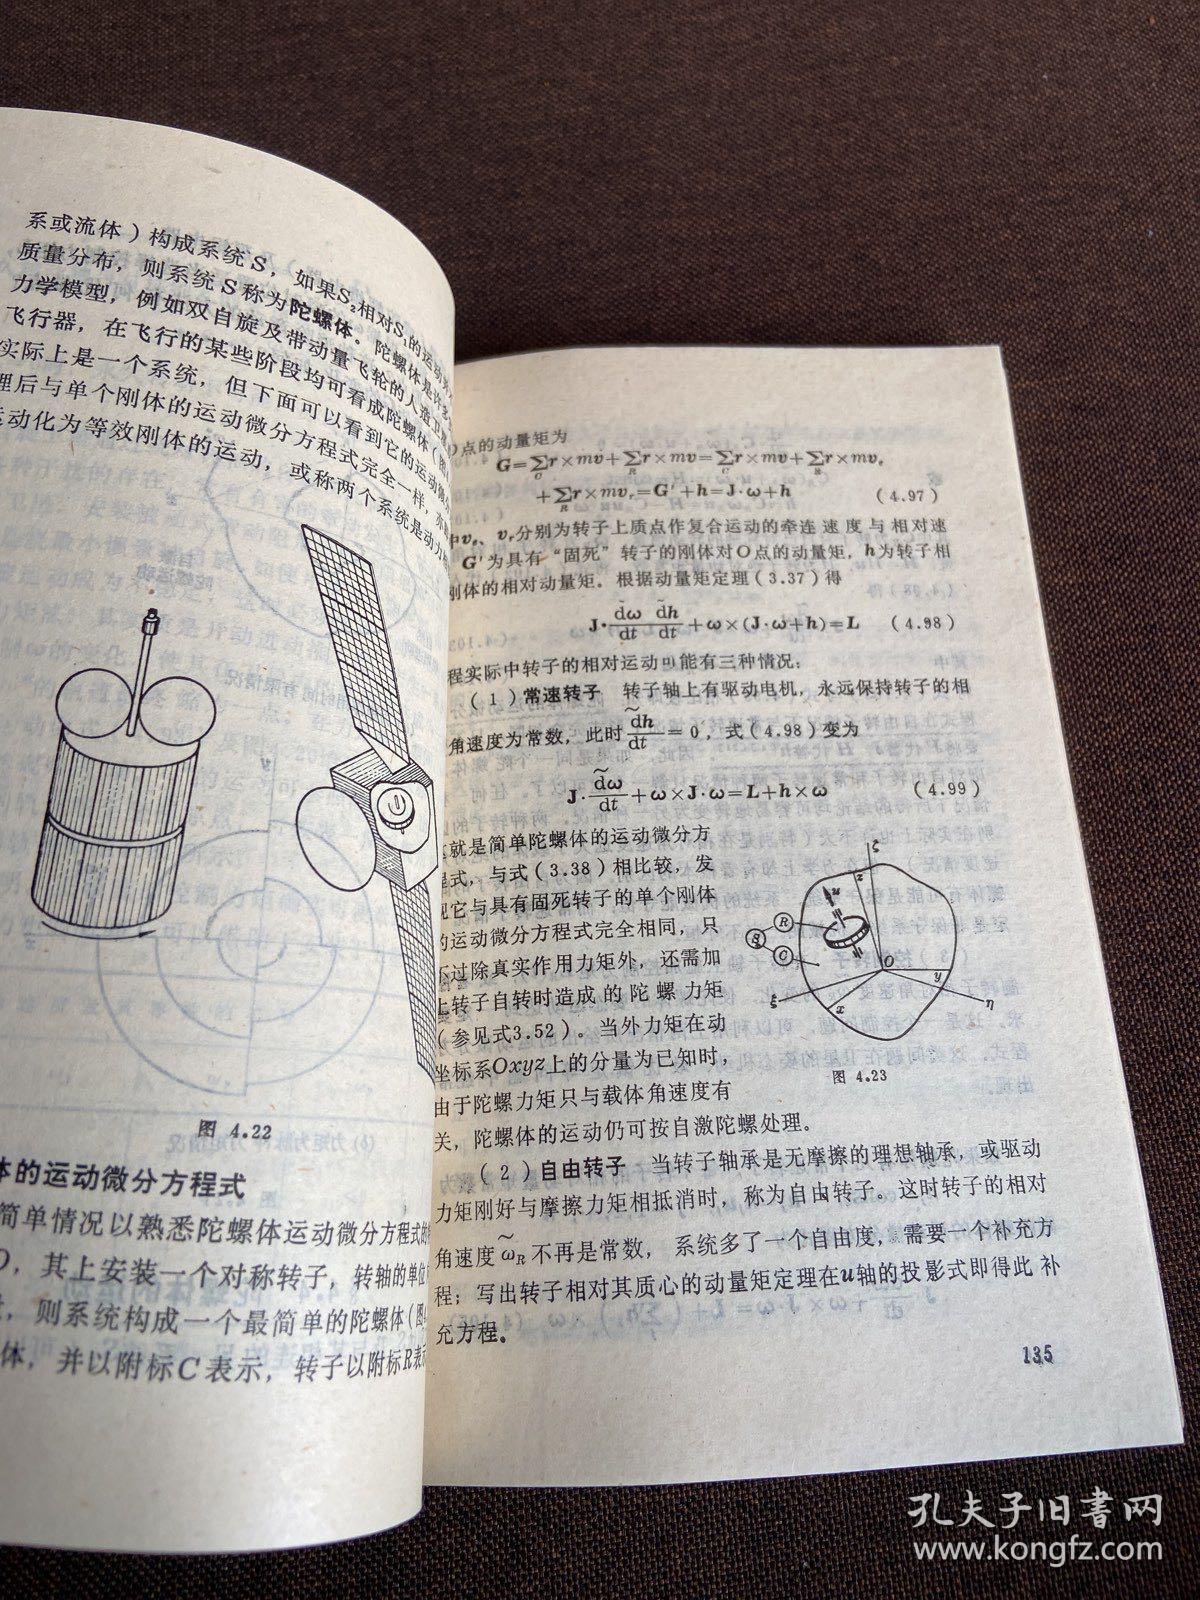 系或流体）构成系统S，如果S₂相对S₁的运动
质量分布，则系统S称为陀螺体。陀螺体是许多
力学模型，例如双自旋及带动量飞轮的人造卫
飞行器，在飞行的某些阶段均可看成陀螺体（图
实际上是一个系统，但下面可以看到它的运动微
理后与单个刚体的运动微分方程式完全一样，亦
运动化为等效刚体的运动，或称两个系统是动力
图 4.22
体的运动微分方程式
简单情况以熟悉陀螺体运动微分方程式的
O，其上安装一个对称转子，转轴的单位
，则系统构成一个最简单的陀螺体（图
体，并以附标C表示，转子以附标R表示
O点的动量矩为
G=∑r×mv+∑r×mv=∑r×mv+∑r×mvₑ
C R C R
+∑r×mvᵣ=G'+h=J·ω+h （4.97）
R
中vₑ、vᵣ分别为转子上质点作复合运动的牵连速度与相对速
G'为具有“固死”转子的刚体对O点的动量矩，h为转子相
刚体的相对动量矩。根据动量矩定理（3.37）得
J·d̃ω/dt d̃h/dt+ω×(J·ω+h)=L （4.98）
程实际中转子的相对运动可能有三种情况：
（1）常速转子 转子轴上有驱动电机，永远保持转子的相
角速度为常数，此时d̃h/dt=0，式（4.98）变为
J·d̃ω/dt+ω×J·ω=L+h×ω （4.99）
这就是简单陀螺体的运动微分方
程式，与式（3.38）相比较，发
现它与具有固死转子的单个刚体
的运动微分方程式完全相同，只
不过除真实作用力矩外，还需加
上转子自转时造成的陀螺力矩
（参见式3.52）。当外力矩在动
坐标系Oxyz上的分量为已知时，
由于陀螺力矩只与载体角速度有
关，陀螺体的运动仍可按自激陀螺处理。
ζ
z
u
R
S
C
O
y
ξ
x
η
图 4.23
（2）自由转子 当转子轴承是无摩擦的理想轴承，或驱动
力矩刚好与摩擦力矩相抵消时，称为自由转子。这时转子的相对
角速度ω̃R不再是常数，系统多了一个自由度，需要一个补充方
程；写出转子相对其质心的动量矩定理在u轴的投影式即得此补
充方程。
135
孔夫子旧书网
www.kongfz.com